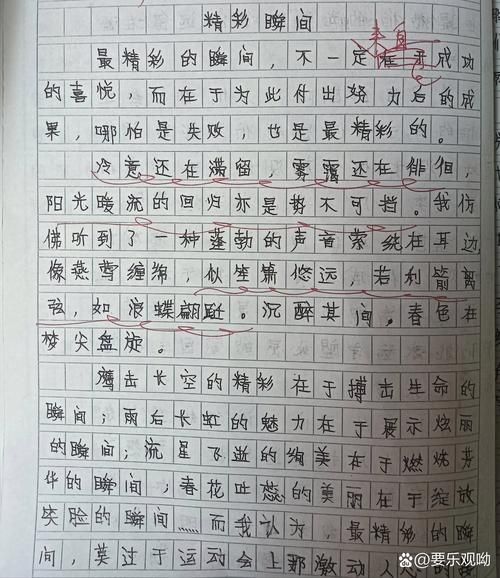 精彩瞬间
来自
最精彩的瞬间，不一定在于成功
的喜悦，而在于为此付出努力后的成
果，哪怕是失败，也是最精彩的。
冷意还在滞留，雾霭还在徘徊，
阳光暖流的回归亦是势不可挡。我仿
佛听到了一种蓬勃的声音萦绕在耳边，
像燕莺缠绵，似笙箫悠远，若利箭离
弦，如浪蝶翩跹。沉醉其间。春色在
梦尖盘旋。
鹰击长空的精彩在于搏击生命的
瞬间；雨后长虹的魅力在于展示炫丽
的瞬间；流星飞逝的绚美在于燃烧芳
华的瞬间，春花吐蕊的美丽在于绽放
笑脸的瞬间……而我认为，最精彩的瞬
间，莫过于运动会上那激动人
@要乐观呦